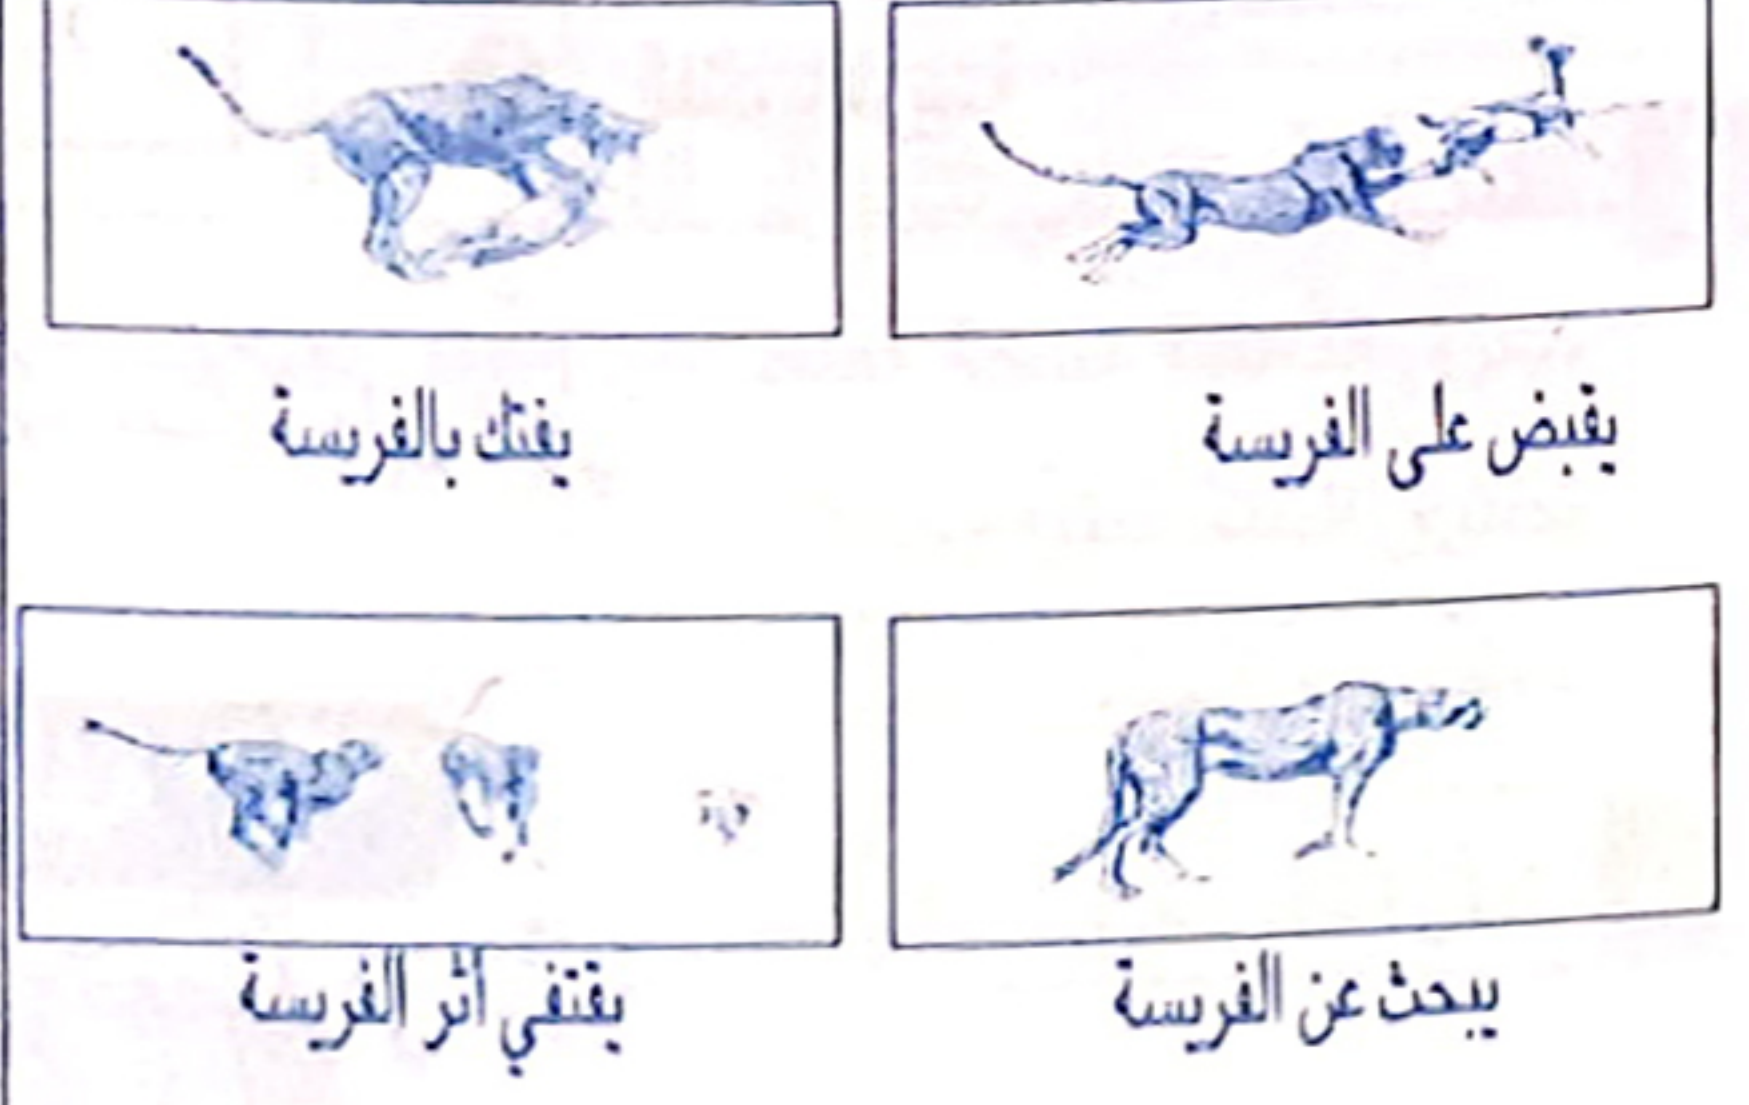 يقبض على الفريسة
يفتك بالفريسة
يبحث عن الفريسة
يقتفي أثر الفريسة